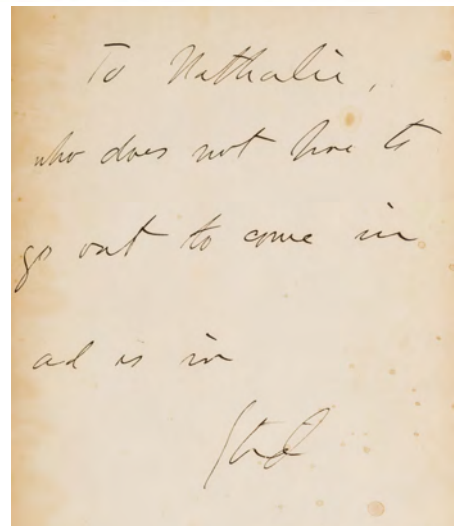 To Nathalie,
who does not have to
go out to come in
and is in